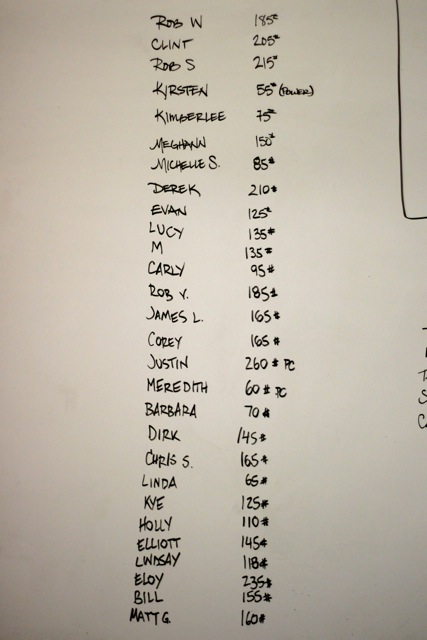 ROB W 185#
CLINT 205#
ROB S 215#
KIRSTEN 55# (POWER)
KIMBERLEE 75#
MEGHANN 150#
MICHELLE S. 85#
DEREK 210#
EVAN 125#
LUCY 135#
M 135#
CARLY 95#
ROB V. 185#
JAMES L. 165#
COREY 165#
JUSTIN 260# PC
MEREDITH 60# PC
BARBARA 70#
DIRK 145#
CHRIS S. 165#
LINDA 65#
KYE 125#
HOLLY 110#
ELLIOTT 145#
LINDSAY 118#
ELOY 235#
BILL 155#
MATT G. 160#